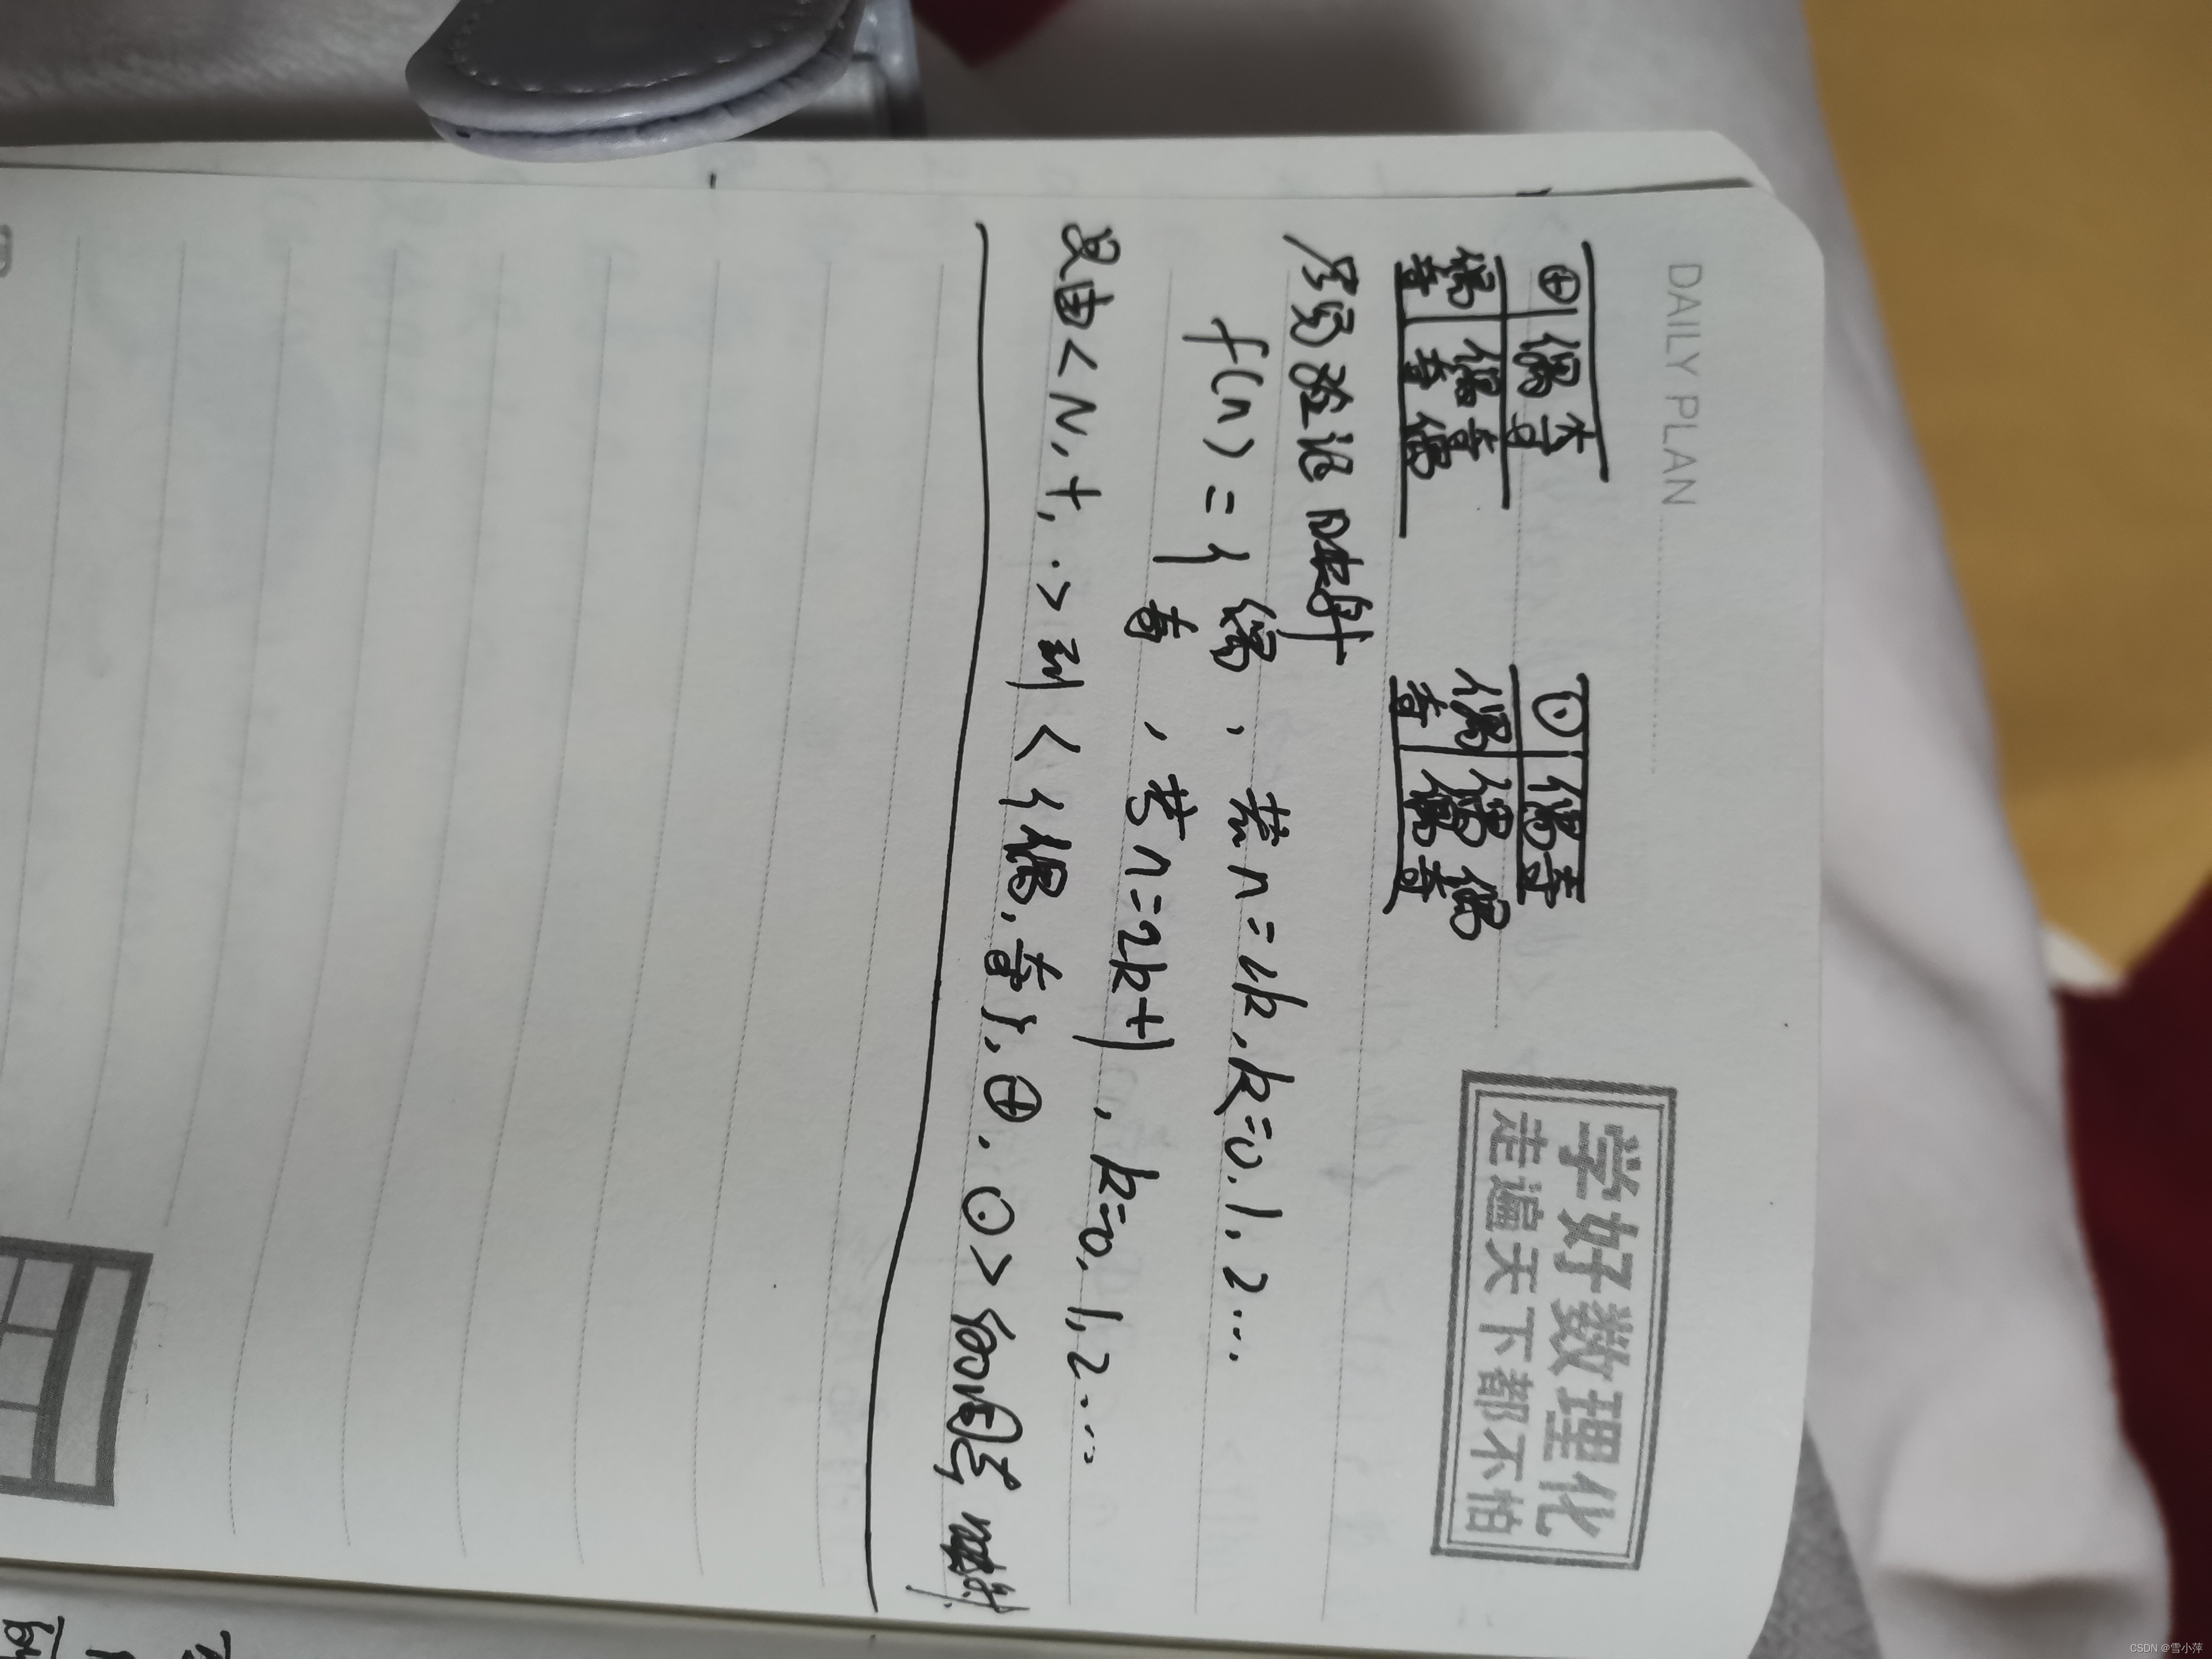 DAILY PLAN
学好数理化
走遍天下都不怕
⊕ 偶 奇
偶 偶 奇
奇 奇 偶
⊙ 偶 奇
偶 偶 偶
奇 偶 奇
容易验证映射
f(n) = { 偶 , 若 n=2k, k=0, 1, 2…
奇 , 若 n=2k+1 , k=0, 1, 2…
是由<N, +, ·>到<{偶, 奇}, ⊕, ⊙>的同态映射
CSDN @雪小萍